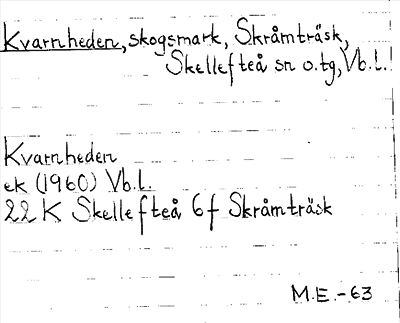 Kvarnheden, skogsmark, Skråmträsk,
Skellefteå sn o.tg, Vb.l.
Kvarnheden
ek (1960) Vb.l.
22 K Skellefteå 6 f Skråmträsk
M.E.-63